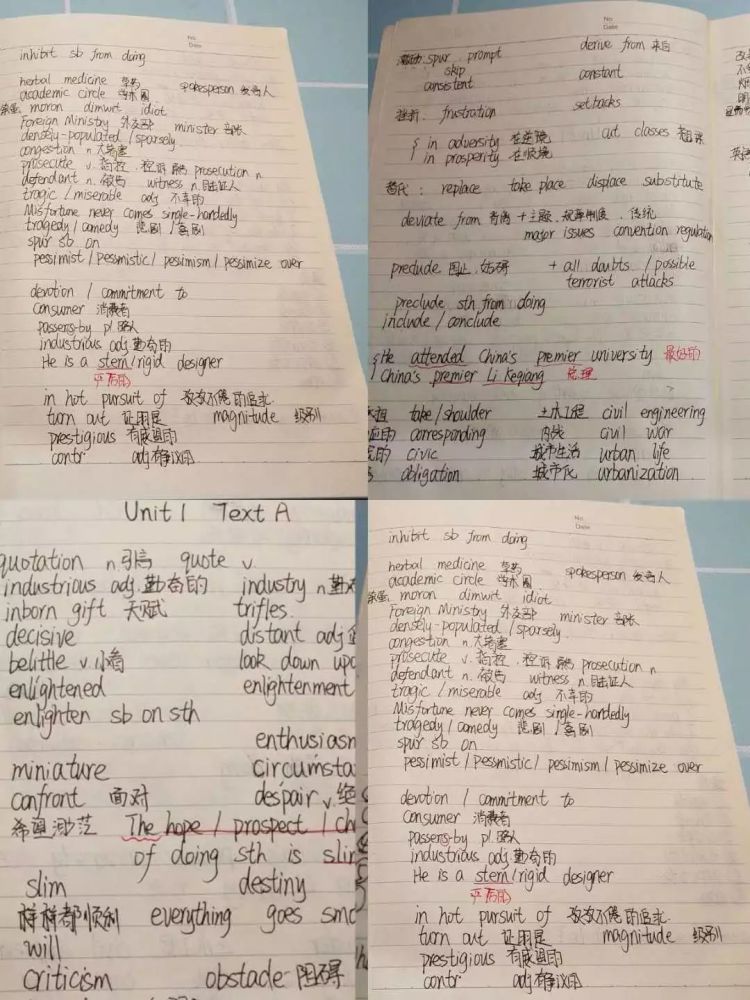 No.
Date
inhibit sb from doing
herbal medicine 草药 spokesperson 发言人
academic circle 学术圈
笨蛋 moron dimwit idiot
Foreign Ministry 外交部 minister 部长
densely-populated / sparsely
congestion n.
prosecute v. 指控, 控诉 prosecution n
defendant n. 被告 witness n. 目击证人
tragic / miserable adj 不幸的
Misfortune never comes single-handedly
tragedy / comedy 悲剧 / 喜剧
spur sb on
pessimist / pessmistic / pessimism / pessimize over
devotion / commitment to
consumer 消费者
passers-by pl. 路人
industrious adj 勤奋的
He is a stern/rigid designer
严厉的
in hot pursuit of 孜孜不倦的追求
turn out 证明是 magnitude 级别
prestigious 有威望的
contr adj 有争议的
No.
Date
激励: spur prompt derive from 来自
skip constant
consistent
挫折: frustration setbacks
in adversity 在逆境 cut classes 翘课
in prosperity 在顺境
替代: replace take place displace substitute
deviate from 背离 + 主题, 规章制度, 传统
major issues convention regulation
preclude 阻止, 妨碍 + all doubts / possible
terrorist attacks
preclude sth from doing
include / conclude
He attended China's premier university 最好的
China's premier Li Keqiang 总理
担 take/shoulder 土木工程 civil engineering
应的 corresponding 内战 civil war
民的 civic 城市生活 urban life
obligation 城市化 urbanization
Unit 1 Text A
quotation n. 引言 quote v.
industrious adj. 勤奋的 industry n 勤
inborn gift 天赋 trifles
decisive distant adj
belittle v. 小看 look down upo
enlightened enlightenment
enlighten sb on sth
enthusiasm
miniature circumsta
confront 面对 despair v. 绝
希望渺茫 The hope / prospect / ch
of doing sth is slim
slim destiny
样样都顺利 everything goes smo
will
criticism obstacle 阻碍
No.
Date
inhibit sb from doing
herbal medicine 草药 spokesperson 发言人
academic circle 学术圈
笨蛋 moron dimwit idiot
Foreign Ministry 外交部 minister 部长
densely-populated / sparsely
congestion n.
prosecute v. 指控, 控诉 prosecution n
defendant n. 被告 witness n. 目击证人
tragic / miserable adj 不幸的
Misfortune never comes single-handedly
tragedy / comedy 悲剧 / 喜剧
spur sb on
pessimist / pessmistic / pessimism / pessimize over
devotion / commitment to
consumer 消费者
passers-by pl. 路人
industrious adj 勤奋的
He is a stern/rigid designer
严厉的
in hot pursuit of 孜孜不倦的追求
turn out 证明是 magnitude 级别
prestigious 有威望的
contr adj 有争议的